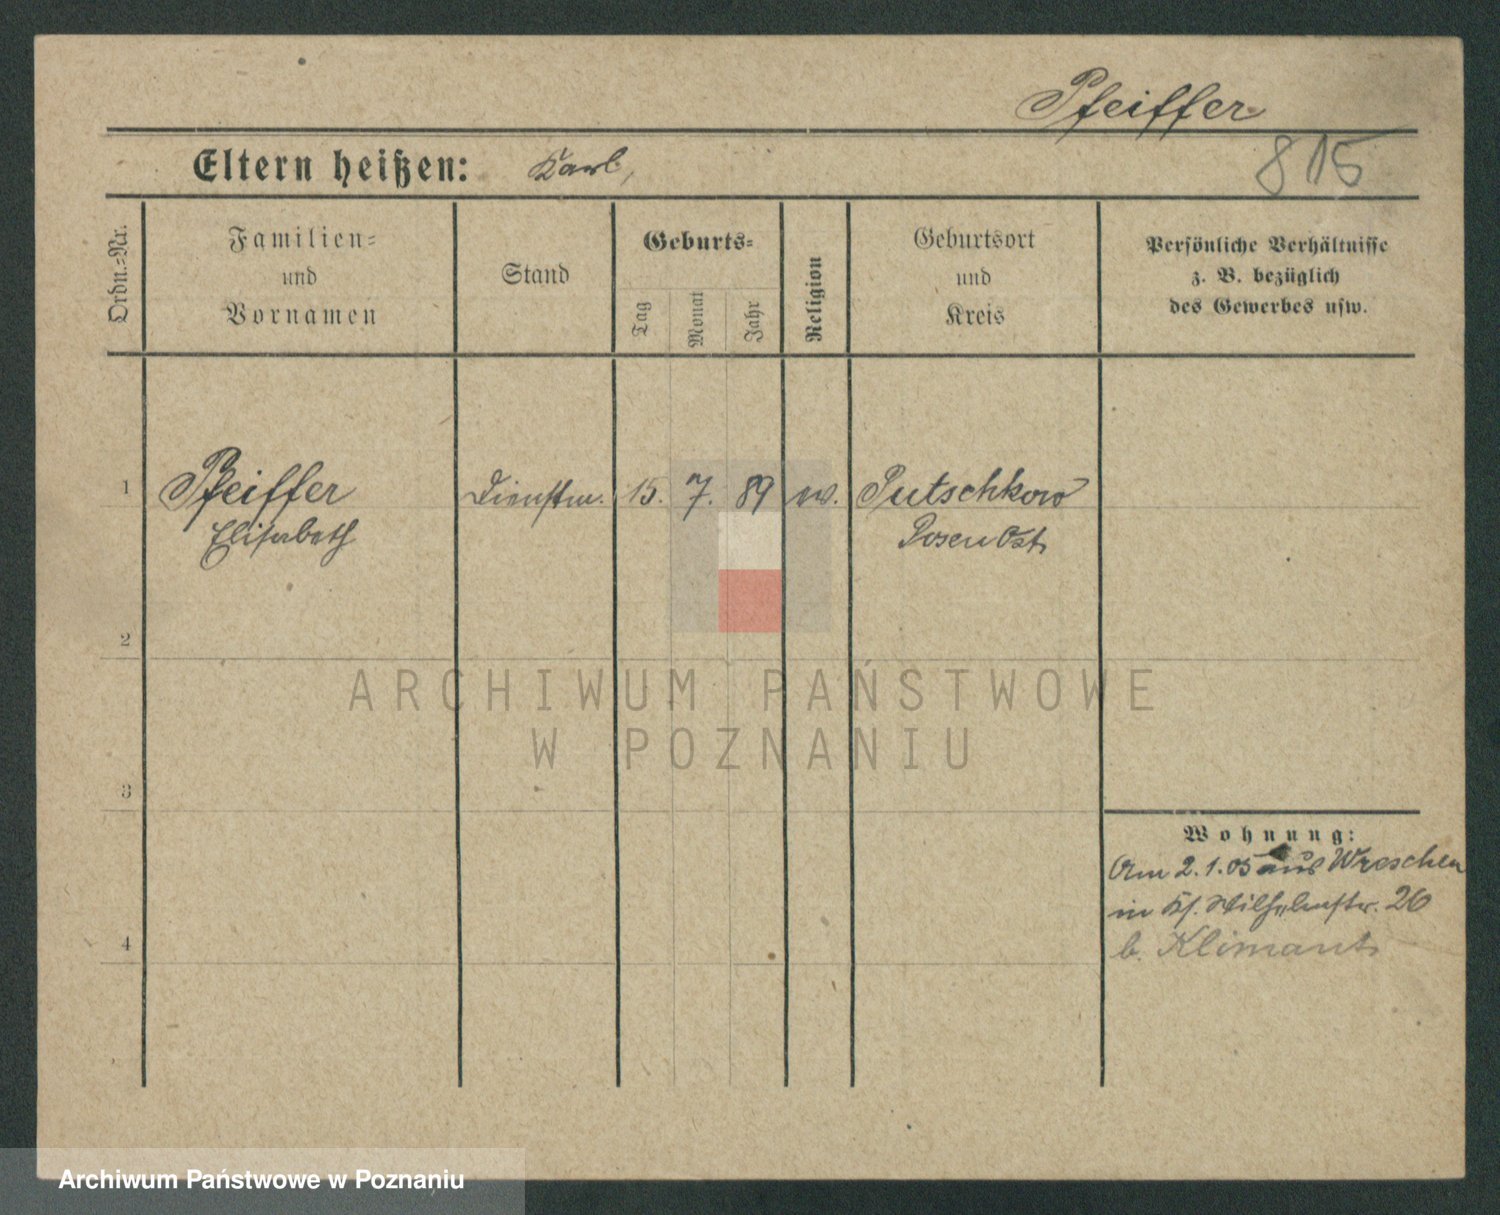 Pfeiffer
Eltern heißen: Karl,
815
Ordn.=Nr.
Familien=
und
Vornamen
Stand
Geburts=
Tag
Monat
Jahr
Religion
Geburtsort
und
Kreis
Persönliche Verhältnisse
z. B. bezüglich
des Gewerbes usw.
1 Pfeiffer Dienstm. 15. 7. 89 ev. Putschkow
Elisabeth Posen Ost
2
3
4
Wohnung:
Am 2.1.05 aus Wreschen
in Kl. Wilhelmstr. 26
b. Klimant
ARCHIWUM PAŃSTWOWE
W POZNANIU
Archiwum Państwowe w Poznaniu